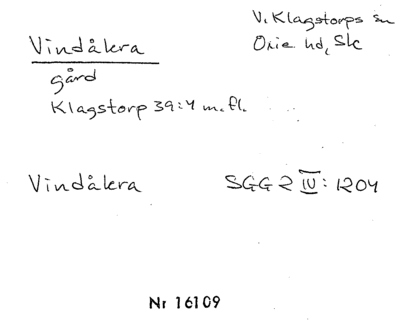 Vindåkra
V. Klagstorps sn
Oxie hd, Sk
gård
Klagstorp 39:4 m.fl.
Vindåkra SGG 2 IV: 1204
Nr 16109